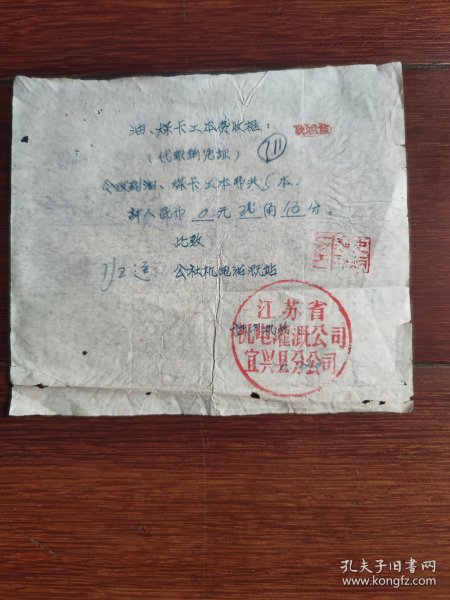 油、煤卡工本费收据：
（代报销凭证）
今收到油、煤卡工本费共5本.
計人民币 0元 角伍分。
此致
公社机电灌溉站
江苏省
机电灌溉公司
宜兴县分公司
孔夫子旧书网
www.kongfz.com